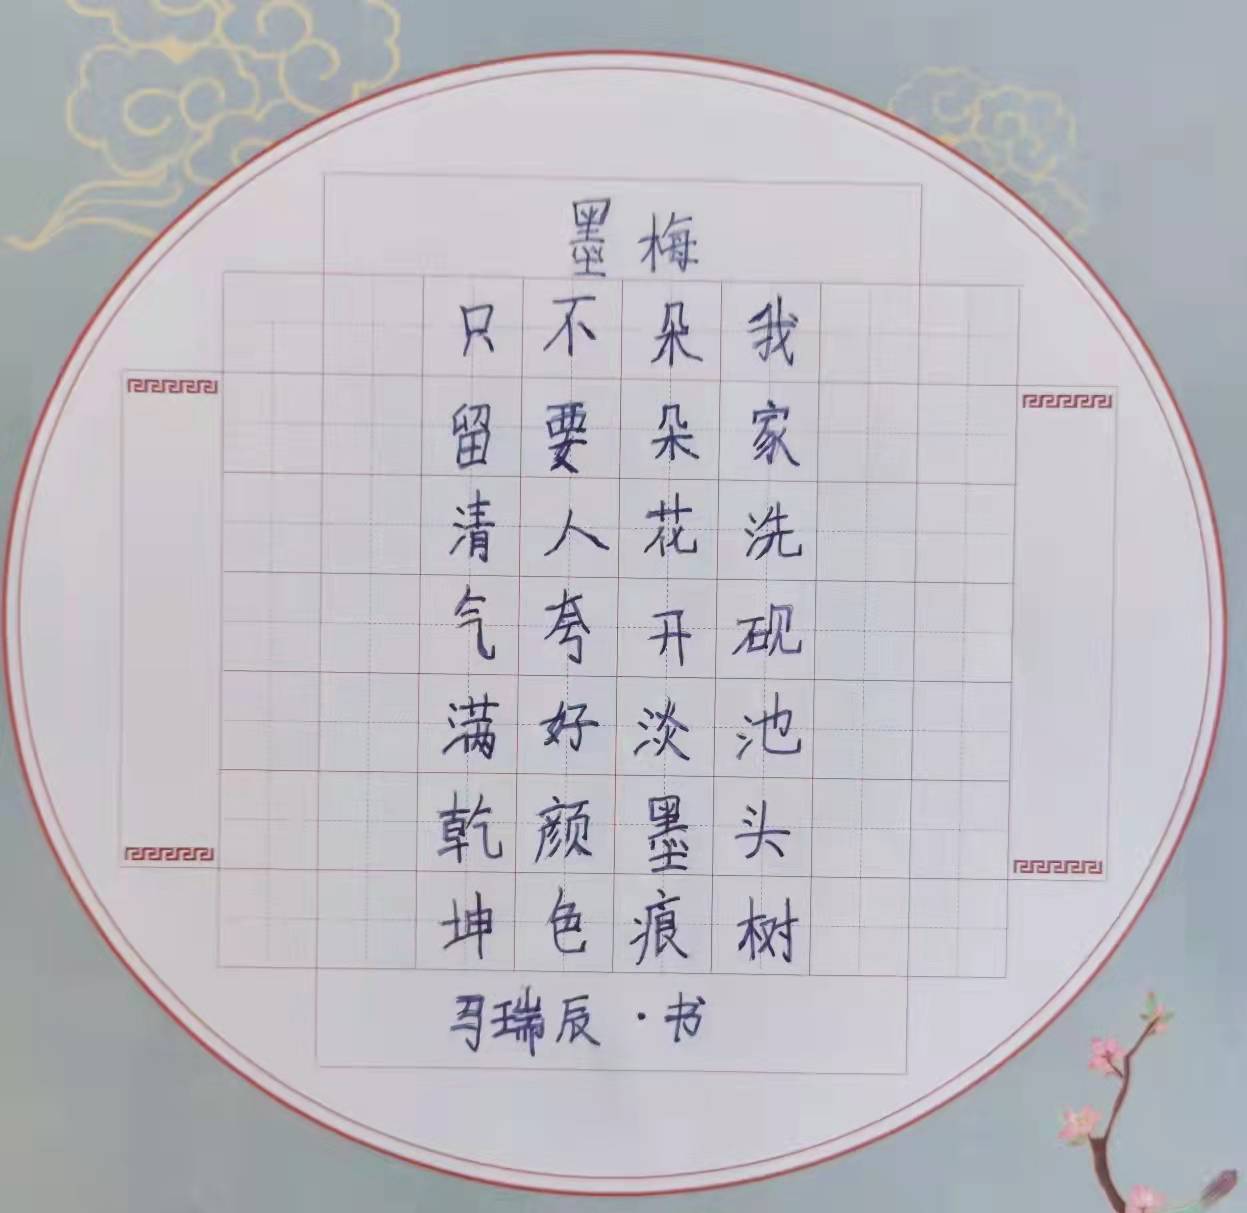 墨梅
我家洗砚池头树
朵朵花开淡墨痕
不要人夸好颜色
只留清气满乾坤
瑞辰·书